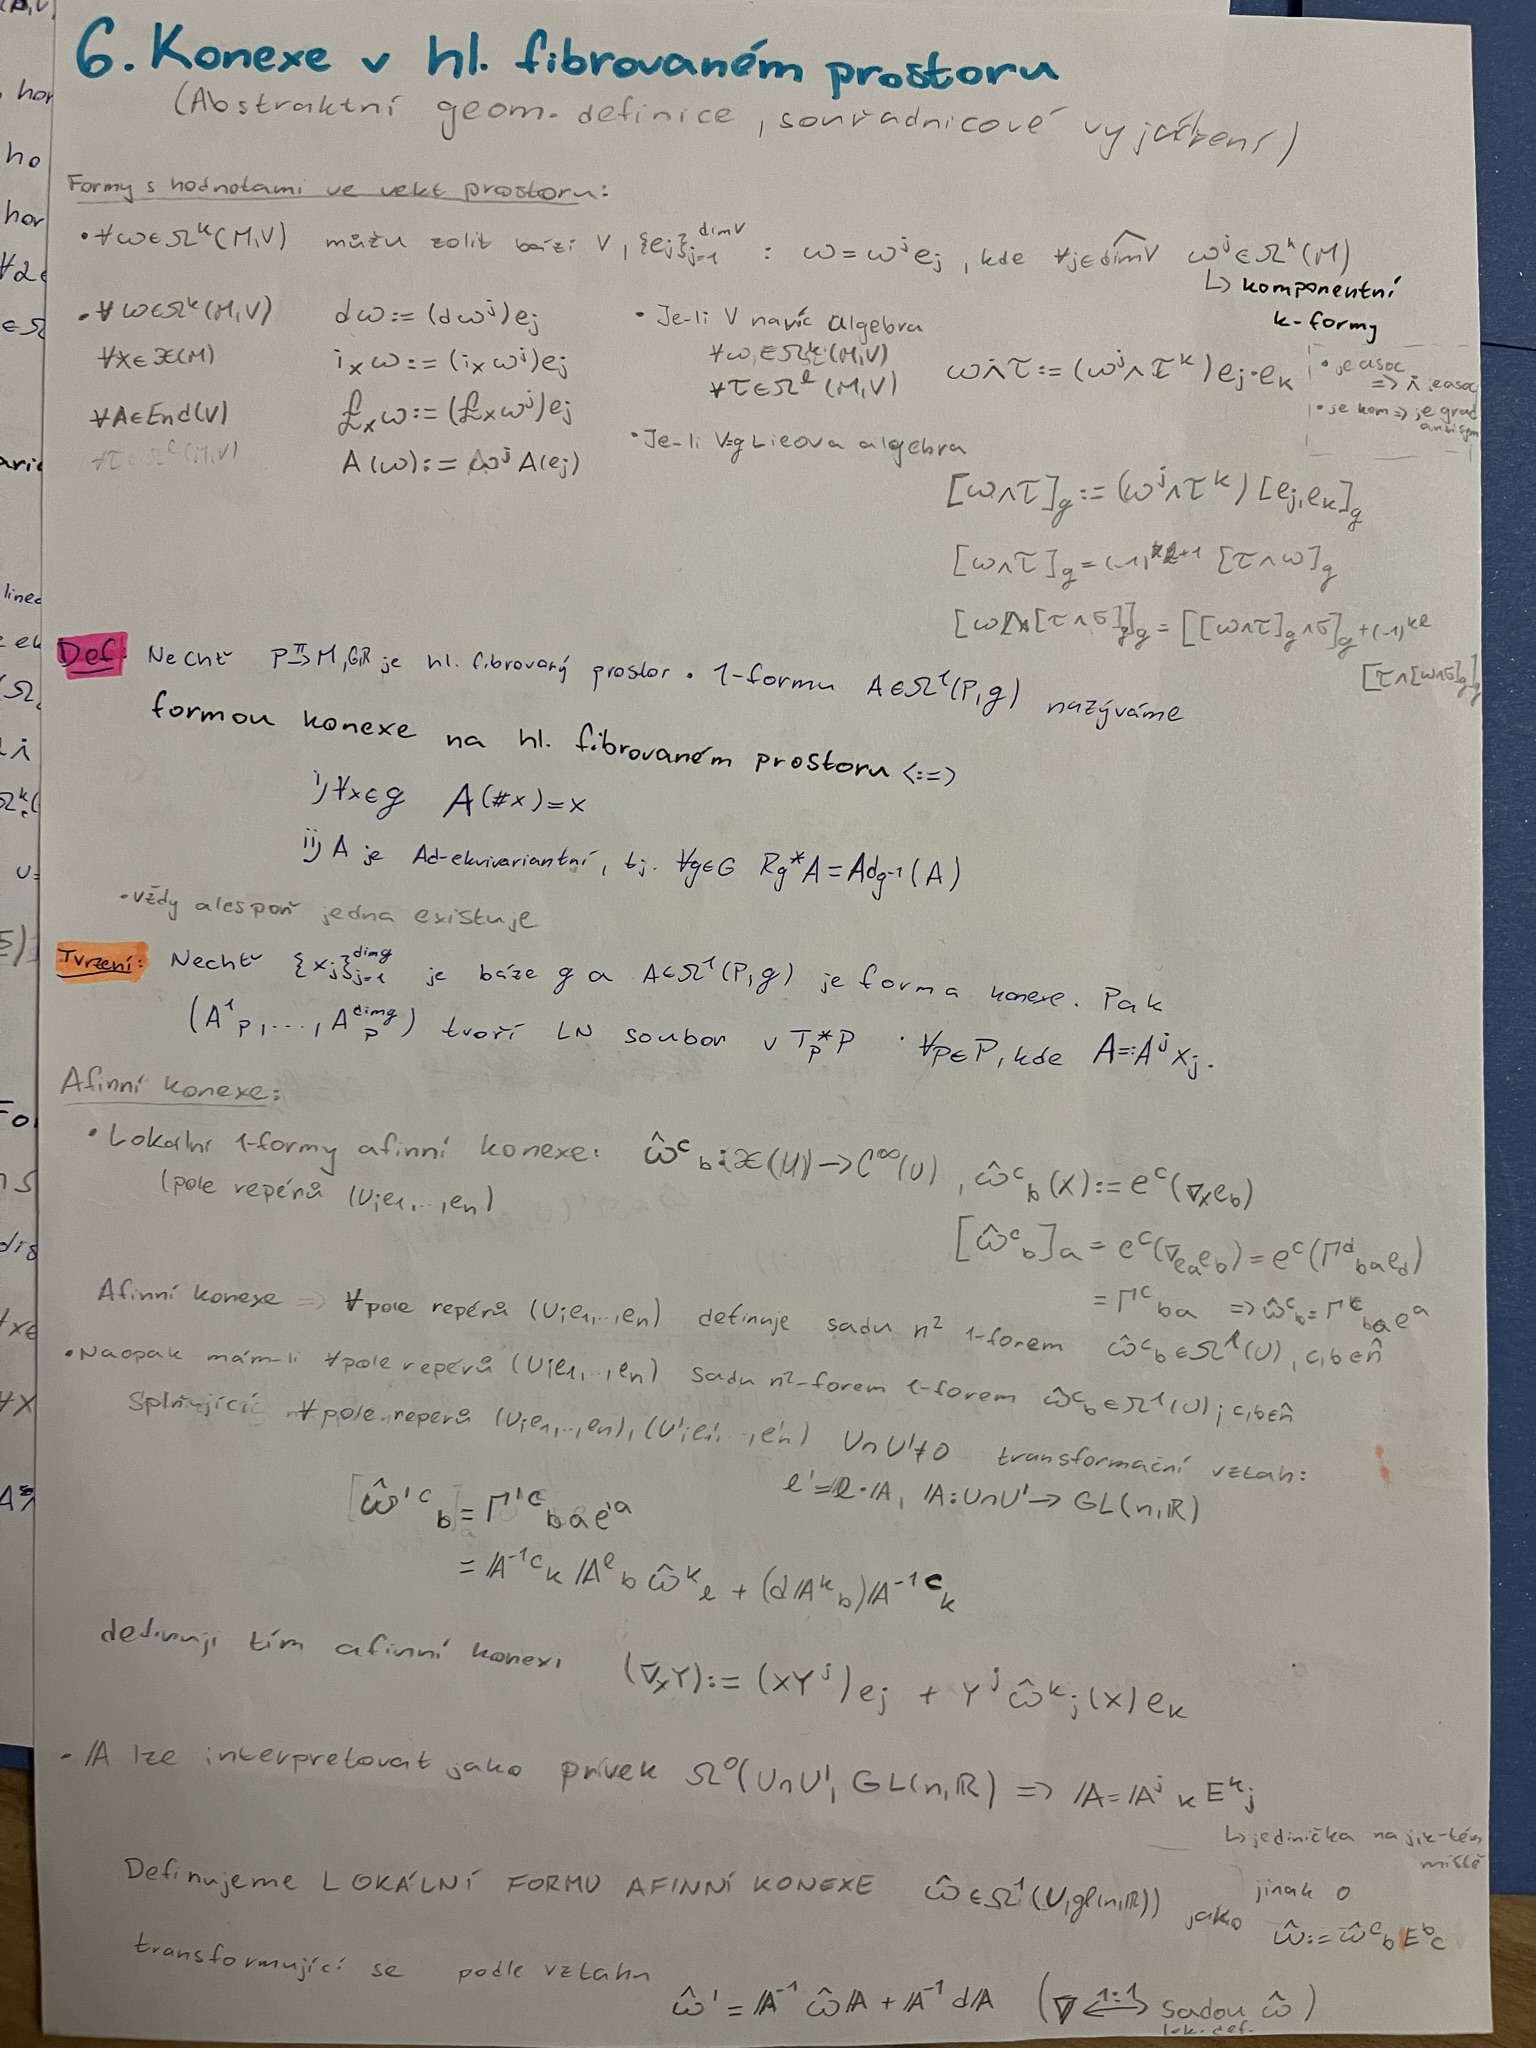 6. Konexe v hl. fibrovaném prostoru
(Abstraktní geom. definice, souřadnicové vyjádření)
Formy s hodnotami ve vekt prostoru:
• ∀ω∈Ωᵏ(M,V) můžu zolit bází V, {eⱼ}ⱼ₌₁^dimV : ω=ωʲeⱼ, kde ∀j∈dim̂V ωʲ∈Ωᵏ(M)
↳ komponentní
k-formy
• ∀ω∈Ωᵏ(M,V) dω:=(dωʲ)eⱼ
∀x∈𝔛(M) iₓω:=(iₓωʲ)eⱼ
£ₓω:=(£ₓωʲ)eⱼ
∀A∈End(V)
∀τ∈Ωˡ(M,V) A(ω):=ωʲA(eⱼ)
• Je-li V navíc algebra
∀ω∈Ωᵏ(M,V)
∀τ∈Ωˡ(M,V) ω∧̇τ:=(ωʲ∧τᵏ)eⱼ·eₖ
• je asoc
=> ∧̇ je asoc
• je kom => je grad
antisym
• Je-li V=g Lieova algebra
[ω∧τ]_g:=(ωʲ∧τᵏ)[eⱼ,eₖ]_g
[ω∧τ]_g=(-1)^{kl+1}[τ∧ω]_g
[ω∧[τ∧σ]_g]_g=[[ω∧τ]_g∧σ]_g+(-1)^{kl}
[τ∧[ω∧σ]_g]_g
Def: Nechť P→^π M,G,R je hl. fibrovaný prostor. 1-formu A∈Ω¹(P,g) nazýváme
formou konexe na hl. fibrovaném prostoru <:=>
i) ∀x∈g A(#x)=x
ii) A je Ad-ekvivariantní, tj. ∀g∈G R_g*A=Ad_{g⁻¹}(A)
• vždy alespoň jedna existuje
Tvrzení: Nechť {xⱼ}ⱼ₌₁^dimg je báze g a A∈Ω¹(P,g) je forma konexe. Pak
(A¹_P,...,A^dimg_P) tvoří LN soubor v T_p*P ∀p∈P, kde A=:Aʲxⱼ.
Afinní konexe:
• Lokální 1-formy afinní konexe: ω̂ᶜ_b:𝔛(U)→C^∞(U), ω̂ᶜ_b(X):=eᶜ(∇ₓe_b)
(pole repérů (U;e₁,...,eₙ)
[ω̂ᶜ_b]_a=eᶜ(∇_{e_a}e_b)=eᶜ(Γᵈ_{ba}e_d)
=Γᶜ_{ba} => ω̂ᶜ_b=Γᶜ_{ba}eᵃ
Afinní konexe => ∀pole repérů (U;e₁,...,eₙ) definuje sadu n² 1-forem ω̂ᶜ_b∈Ω¹(U), c,b∈n̂
• Naopak mám-li ∀pole repérů (U;e₁,...,eₙ) sadu n²-forem 1-forem ω̂ᶜ_b∈Ω¹(U); c,b∈n̂
Splňující ∀pole repérů (U;e₁,...,eₙ),(U';e₁',...,eₙ') U∩U'≠0 transformační vztah:
e'=e·𝔸, 𝔸:U∩U'→GL(n,ℝ)
[ω̂'ᶜ_b]_a=Γ'ᶜ_{ba}e'ᵃ
=𝔸⁻¹ᶜₖ𝔸ˡ_b ω̂ᵏₗ+(d𝔸ᵏ_b)𝔸⁻¹ᶜₖ
definuji tím afinní konexi (∇ₓY):=(XYʲ)eⱼ+Yʲω̂ᵏⱼ(X)eₖ
• 𝔸 lze interpretovat jako prvek Ω⁰(U∩U', GL(n,ℝ) => 𝔸=𝔸ʲₖEᵏⱼ
↳ jedinička na j,k-tém
místě
jinak 0
Definujeme LOKÁLNÍ FORMU AFINNÍ KONEXE ω̂∈Ω¹(U,gl(n,ℝ)) jako ω̂:=ω̂ᶜ_bEᵇ_c
transformující se podle vztahu
ω̂'=𝔸⁻¹ω̂𝔸+𝔸⁻¹d𝔸 (∇ <-1:1-> sadou ω̂)
lok. def.